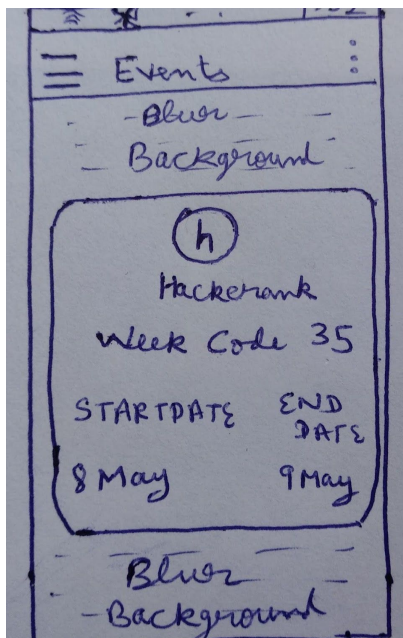 Events
Blur
Background
h
Hackerank
Week Code 35
STARTDATE END DATE
8 May 9 May
Blur
Background